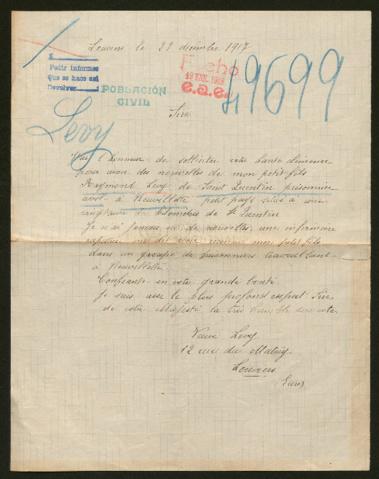 Louviers le 22 décembre 1917
Pedir informes
Que se hace así
Devolver
POBLACIÓN
CIVIL
Fecho
e.a.e.
49699
Levy
Sire
J'ai l'honneur de solliciter votre haute
pour avoir des nouvelles de mon petit-fils
Raymond Levy de Saint Quentin prisonnier
à petit pays situé à une
de kilomètres de St Quentin
Je n'ai jamais eu de nouvelles, une infirmière
mon petit fils
dans un groupe de prisonniers travaillant
à
Confiante en votre grande bonté
Je suis avec le plus profond respect Sire
de votre Majesté la très humble servante
Veuve Levy
12 rue du
Louviers
Eure